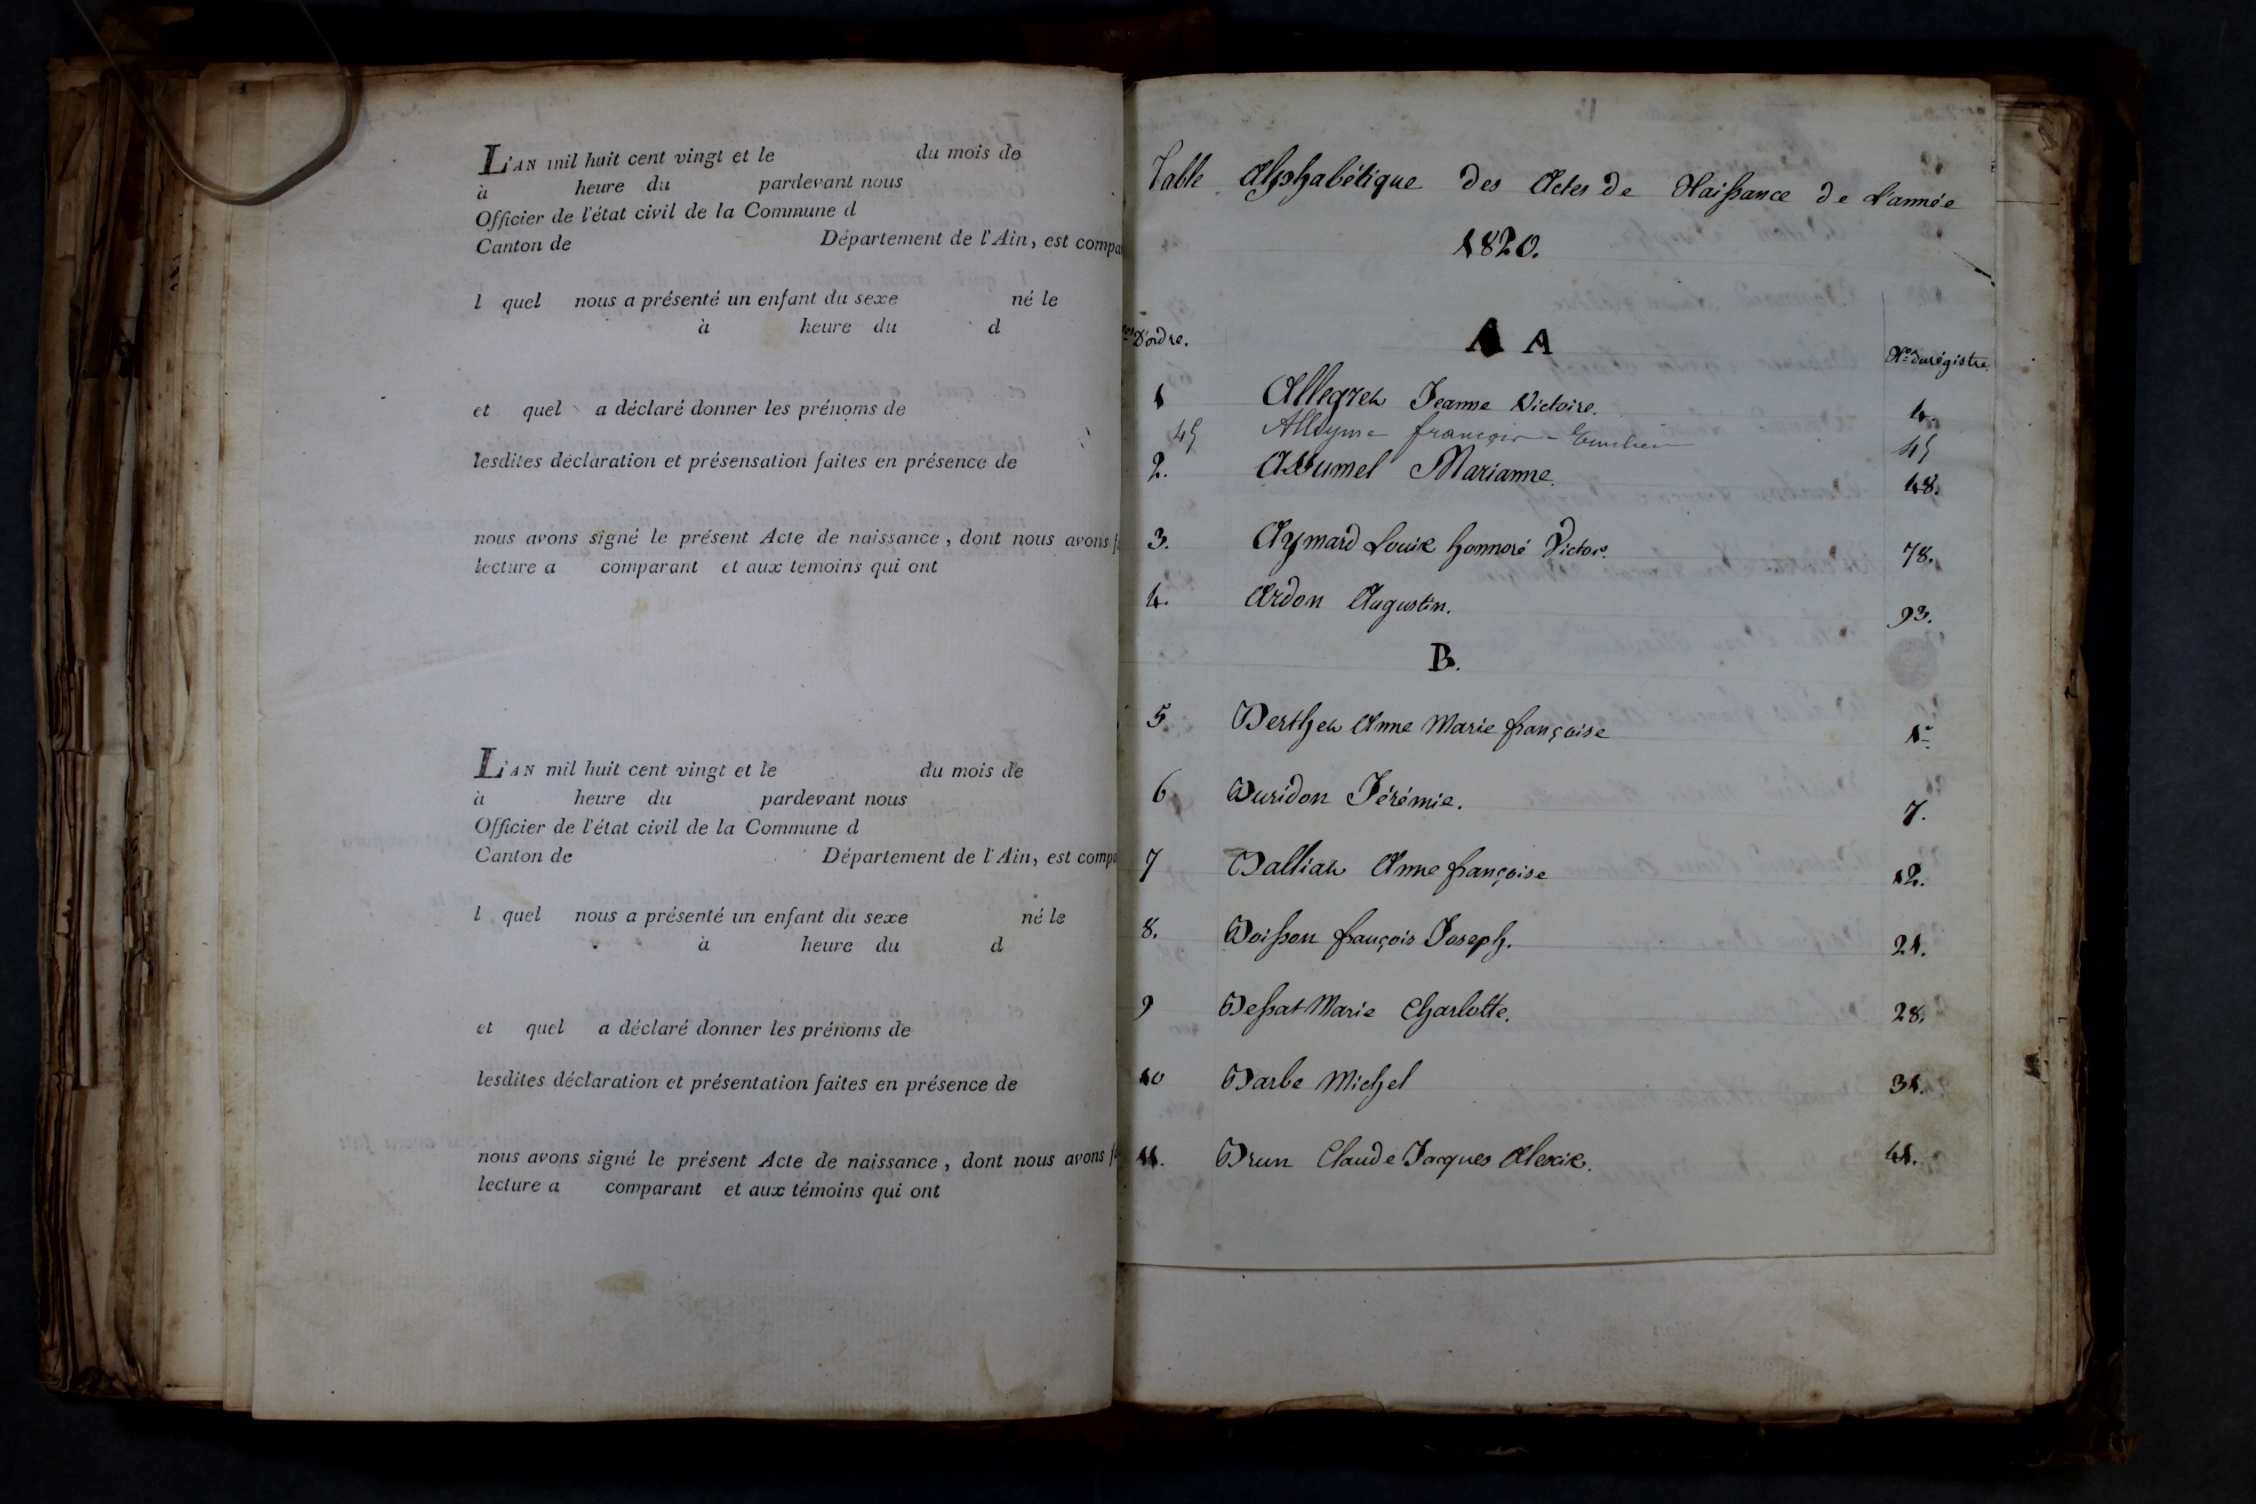 L'AN mil huit cent vingt et le du mois de
à heure du pardevant nous
Officier de l'état civil de la Commune d
Canton de Département de l'Ain, est compa
l quel nous a présenté un enfant du sexe né le
à heure du d
et quel a déclaré donner les prénoms de
lesdites déclaration et présensation faites en présence de
nous avons signé le présent Acte de naissance, dont nous avons f
lecture a comparant et aux témoins qui ont
L'AN mil huit cent vingt et le du mois de
à heure du pardevant nous
Officier de l'état civil de la Commune d
Canton de Département de l'Ain, est comp
l quel nous a présenté un enfant du sexe né le
à heure du d
et quel a déclaré donner les prénoms de
lesdites déclaration et présentation faites en présence de
nous avons signé le présent Acte de naissance, dont nous avons f
lecture a comparant et aux témoins qui ont
Table Alphabétique des Actes de Naissance de L'année
1820.
D'ordre. A A No. du régistre
1 Allegret Jeanne Victoire. 4.
45 françois 45
2. Assumel Marianne. 48.
3. Aymard Louis honnoré Victor. 78.
4. Ardon Augustin. 93.
B.
5 Berthet Anne Marie françoise 1er
6 Buridon Jérémie. 7.
7 Balliat Anne françoise 12.
8. Boisson françois Joseph. 21.
9 Bessat Marie Charlotte. 28.
10 Barbe Michel 31.
11. Brun Claude Jacques Alexis. 41.